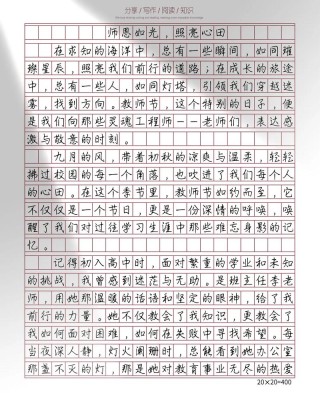 分享/写作/阅读/知识
师恩如光，照亮心田
在求知的海洋中，总有一些瞬间，如同璀
璨星辰，照亮我们前行的道路；在成长的旅途
中，总有一些人，如同灯塔，引领我们穿越迷
雾，找到方向。教师节，这个特别的日子，便
是我们向那些灵魂工程师——老师们，表达感
激与敬意的时刻。
九月的风，带着初秋的凉爽与温柔，轻轻
拂过校园的每一个角落，也吹进了我们每个人
的心田。在这个季节里，教师节如约而至，它
不仅仅是一个节日，更是一份深情的呼唤，唤
醒了我们对过往学习生涯中那些难忘身影的记
忆。
记得初入高中时，面对繁重的学业和未知
的挑战，我曾感到迷茫与无助。是班主任李老
师，用她那温暖的话语和坚定的眼神，给了我
前行的力量。她不仅教会了我知识，更教会了
我如何面对困难，如何在失败中寻找希望。每
当夜深人静，灯火阑珊时，总能看到她办公室
那盏不灭的灯，那是她对教育事业无尽的热爱
20×20=400